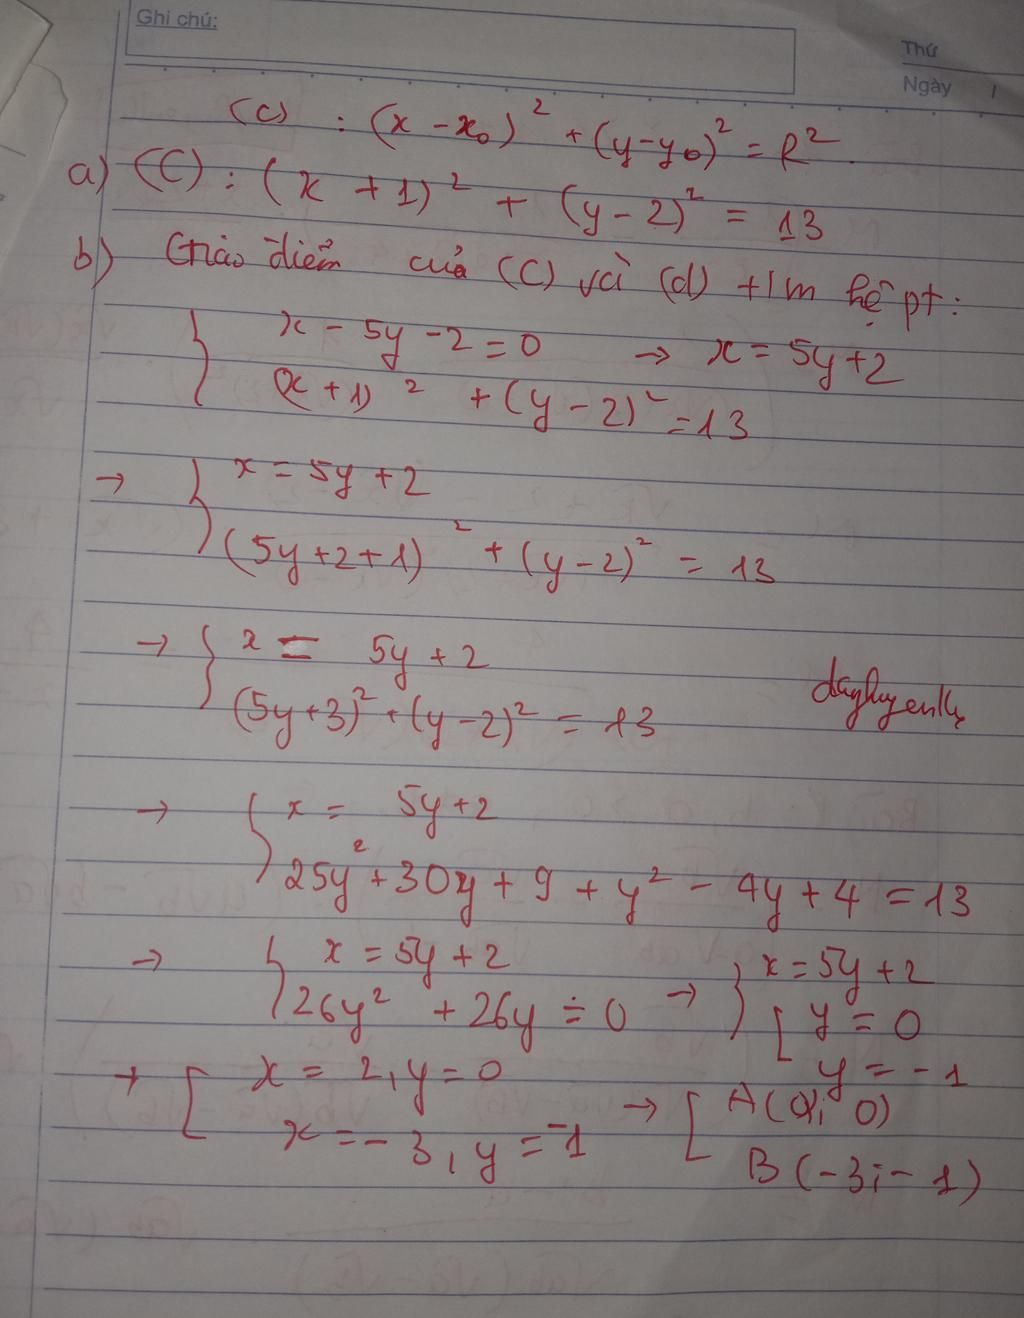 Ghi chú:
Thứ
Ngày /
(C) : (x - x₀)² + (y - y₀)² = R².
a) (C) : (x + 1)² + (y - 2)² = 13
b) Giao điểm của (C) và (d) t/m hệ pt:
{ x - 5y - 2 = 0 → x = 5y + 2
(x + 1)² + (y - 2)² = 13
→ { x = 5y + 2
(5y + 2 + 1)² + (y - 2)² = 13
→ { x = 5y + 2
(5y + 3)² + (y - 2)² = 13
→ { x = 5y + 2
25y² + 30y + 9 + y² - 4y + 4 = 13
→ { x = 5y + 2 → { x = 5y + 2
26y² + 26y = 0 [ y = 0
y = -1
→ [ x = 2, y = 0
x = -3, y = -1 → [ A(2; 0)
B(-3; -1)